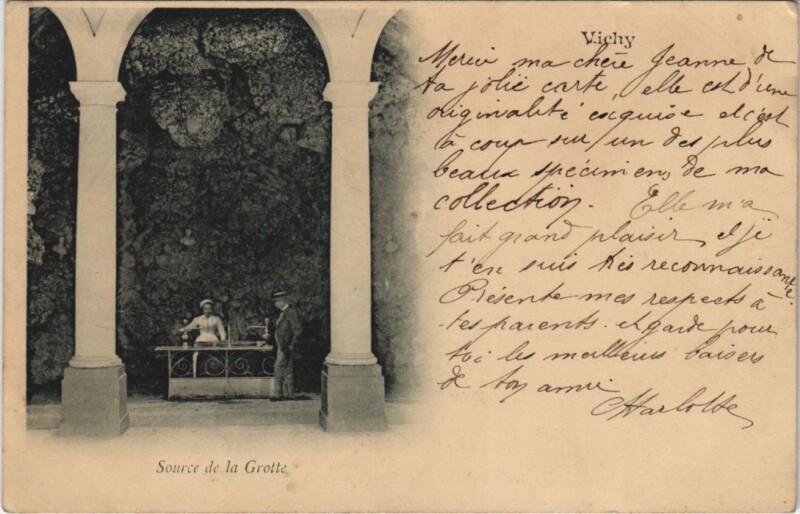 Vichy
Merci ma chère Jeanne de
ta jolie carte, elle est d'une
originalité exquise et c'est
à coup sur un des plus
beaux spécimens de ma
collection. Elle m'a
fait grand plaisir, et je
t'en suis très reconnaissante.
Présente mes respects à
tes parents. et garde pour
toi les meilleurs baisers
de ton amie
Charlotte
Source de la Grotte